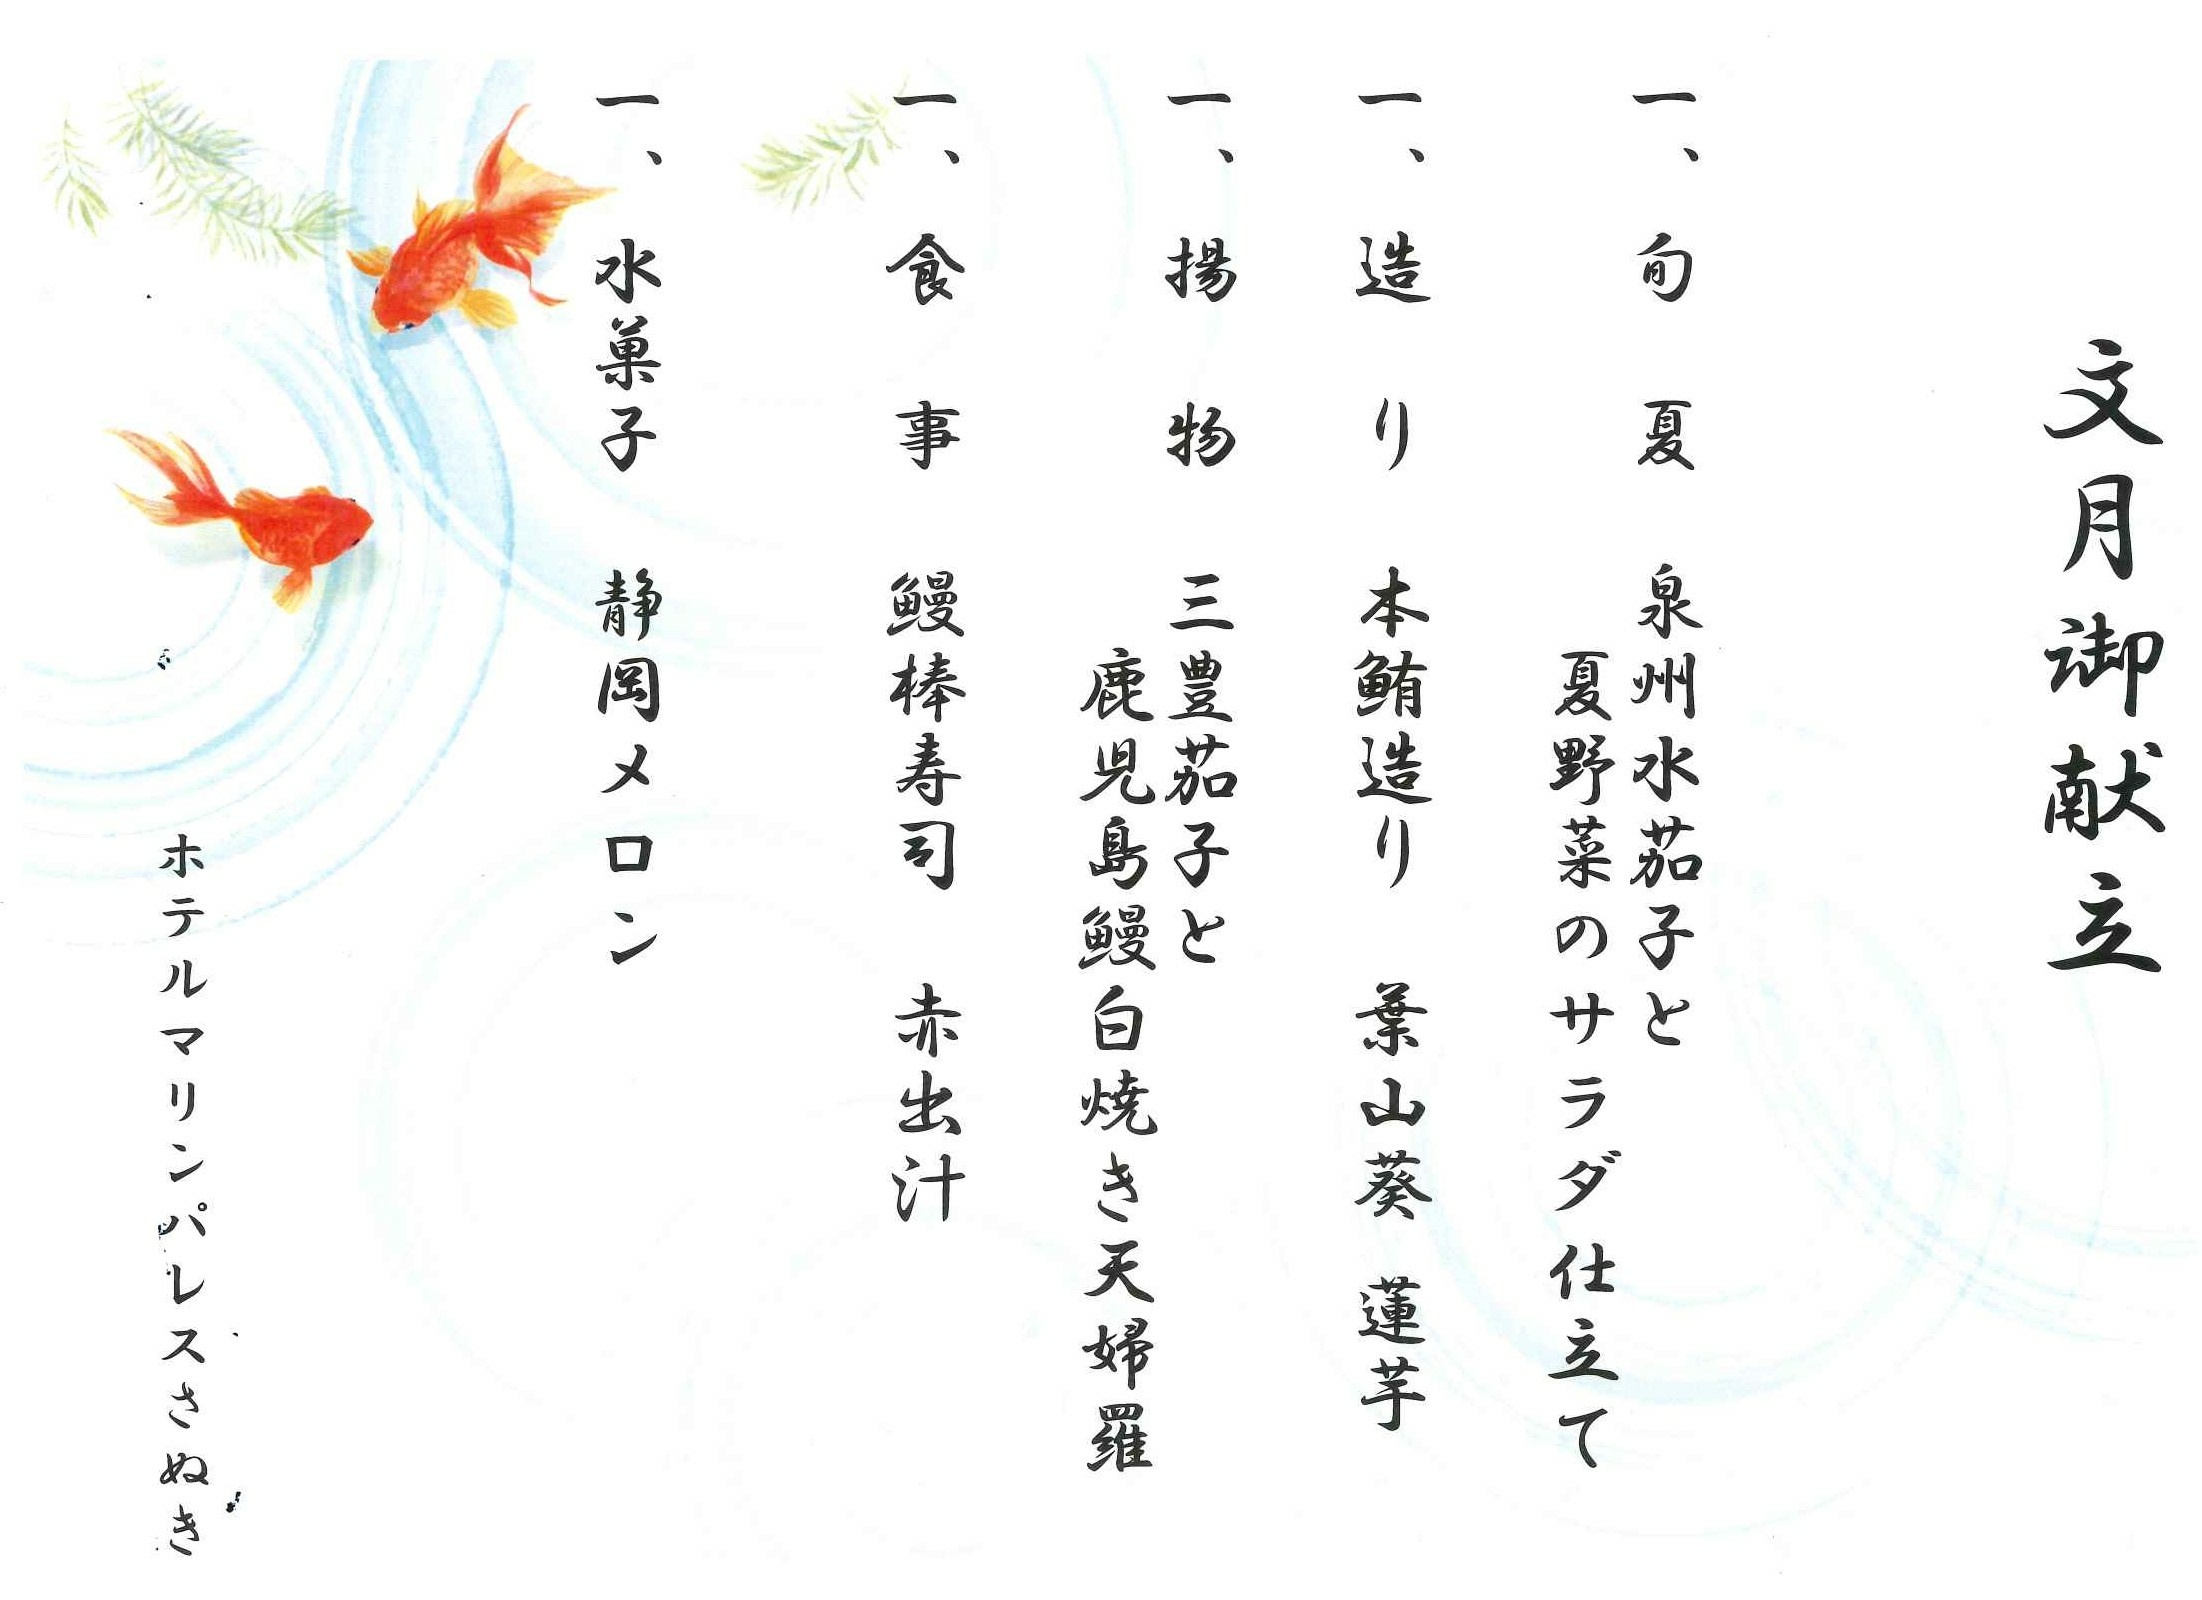 文月御献立
一、旬　夏　泉州水茄子と
夏野菜のサラダ仕立て
一、造　り　本鮪造り　葉山葵　蓮芋
一、揚　物　三豊茄子と
鹿児島鰻白焼き天婦羅
一、食　事　鰻棒寿司　赤出汁
一、水菓子　静岡メロン
ホテルマリンパレスさぬき